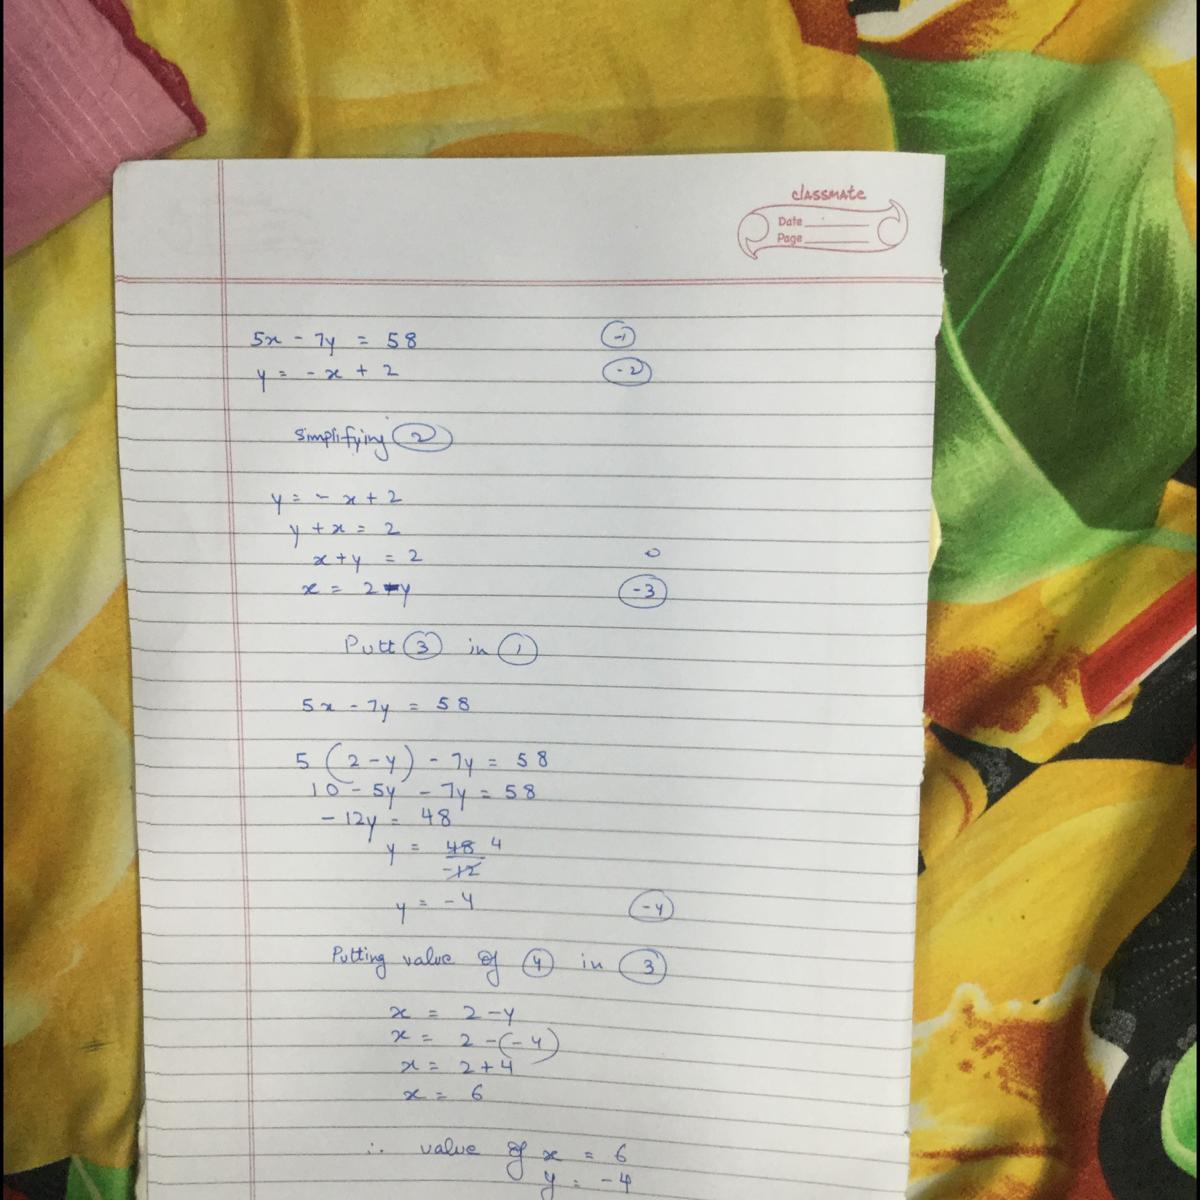 classmate
Date
Page
5x - 7y = 58 (-1)
y = - x + 2 (-2)
Simplifying (2)
y = - x + 2
y + x = 2
x + y = 2
x = 2 - y (-3)
Putt (3) in (1)
5x - 7y = 58
5 (2 - y) - 7y = 58
10 - 5y - 7y = 58
- 12y = 48
y = 48 4
-12
y = - 4 (-4)
Putting value of (4) in (3)
x = 2 - y
x = 2 - (- 4)
x = 2 + 4
x = 6
∴ value of x = 6
y = - 4